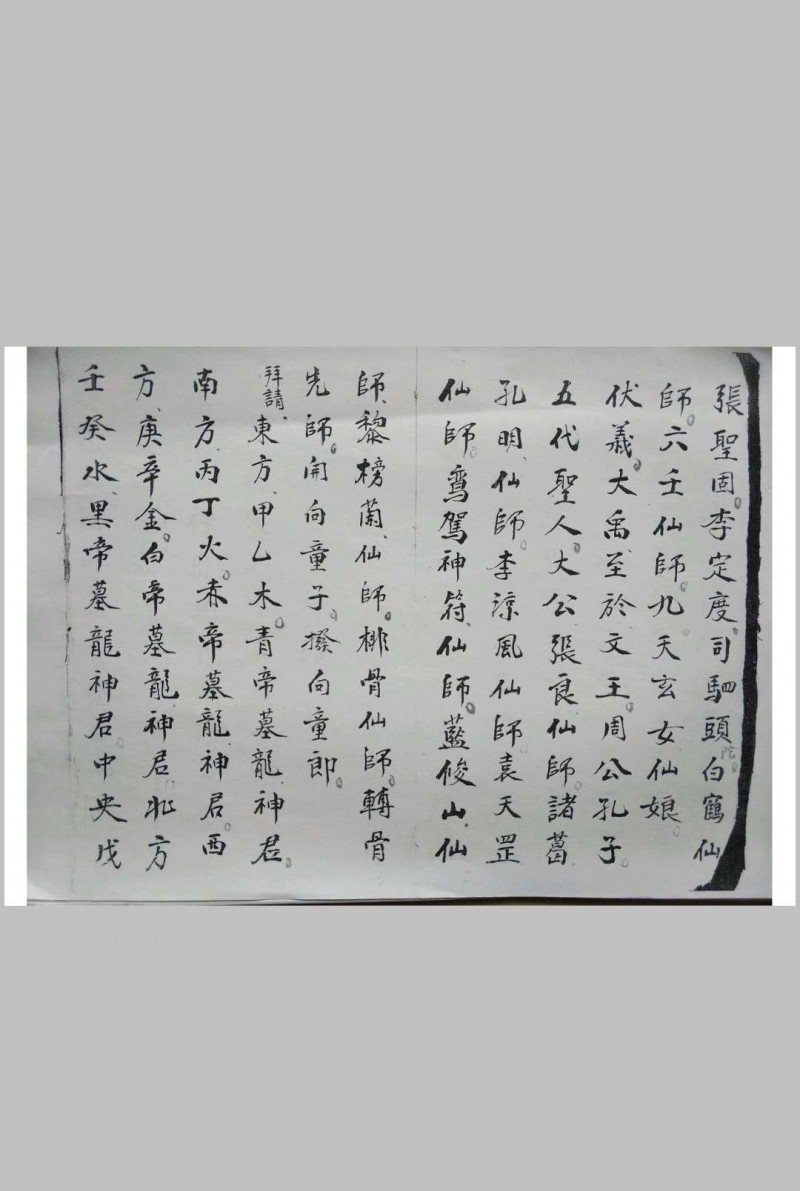 張聖固。李定度、司馬頭陀。白鶴仙
師。六壬仙師。九天玄女仙娘。
伏義。大禹至於文王。周公孔子。
五代聖人。大公張良仙師。諸葛
孔明、仙師。李涼風仙師。袁天罡
仙師。鸞駕神符、仙師。藍俊山、仙
師、黎榜蘭、仙師。排骨仙師。轉骨
先師。開向童子。撥向童郎。
拜請、東方、甲乙木。青帝墓龍、神君。
南方、丙丁火。赤帝墓龍、神君。西
方、庚辛金。白帝墓龍、神君、北方
壬癸水、黑帝墓龍神君。中央戊